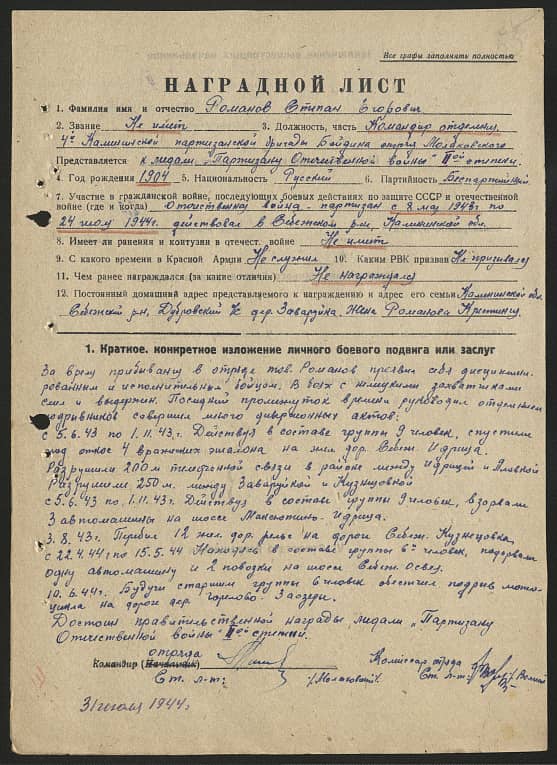 Все графы заполнять полностью
НАГРАДНОЙ ЛИСТ
1. Фамилия имя и отчество Романов Стипан Егорович
2. Звание Не имеет 3. Должность, часть Командир отделения
4й Калининской партизанской бригады Бойдина отряд
Представляется к медали „Партизану Отечественной войны" IIой степени
4. Год рождения 1904 5. Национальность Русский 6. Партийность Беспартийный
7. Участие в гражданской войне, последующих боевых действиях по защите СССР и отечественной
войне (где и когда) Отечественная война - партизан с 8 мая 1943г по
24 июля 1944г. действовал в Себежском р-не, Калининской обл.
8. Имеет ли ранения и контузии в отечест. войне Не имеет
9. С какого времени в Красной Армии Не служил 10. Каким РВК призван Не призывался
11. Чем ранее награждался (за какие отличия) Не награждался
12. Постоянный домашний адрес представляемого к награждению и адрес его семьи Калининской обл.
Себежский р-н, Дубровский с/с дер. Заваруйка, жена Романова
1. Краткое, конкретное изложение личного боевого подвига или заслуг
За время пребывания в отряде тов. Романов проявил себя дисциплини-
рованным и исполнительным бойцом. В боях с немецкими захватчиками
смел и выдержан. Последний промежуток времени руководил отделением
подрывников совершил много диверсионных актов:
с 5.6.43 по 1.11.43г. Действуя в составе группы 9 человек, спустили
под откос 4 вражеских эшелона на жел. дор. Себеж Идрица.
Разрушили 200м телефонной связи в районе между Идрицей и
Разрушили 250м. между Заваруйкой и Кузнецовкой
с 5.6.43 по 1.11.43г. Действуя в составе группы 9 человек, взорвали
3 автомашины на шоссе Максютино - Идрица.
3.8.43г. Перебил 12 жел. дор. рельс на дороги Себеж. Кузнецовка,
с 22.4.44г по 15.5.44 Находясь в составе группы 6ти человек, подорвали
одну автомашину и 2 повозки на шоссе Себеж. Освея.
10.6.44г. Будучи старшим группы 6 человек обеспечил подрыв мото-
цикла на дороги дер. Горелово - Заозерье.
Достоин правительственной награды, медали „Партизану
Отечественной войны" IIой степени.
отряда
Командир (Начальник)
Комиссар отряда
Ст. л-т.
Ст. л-т.
31 июля 1944г.